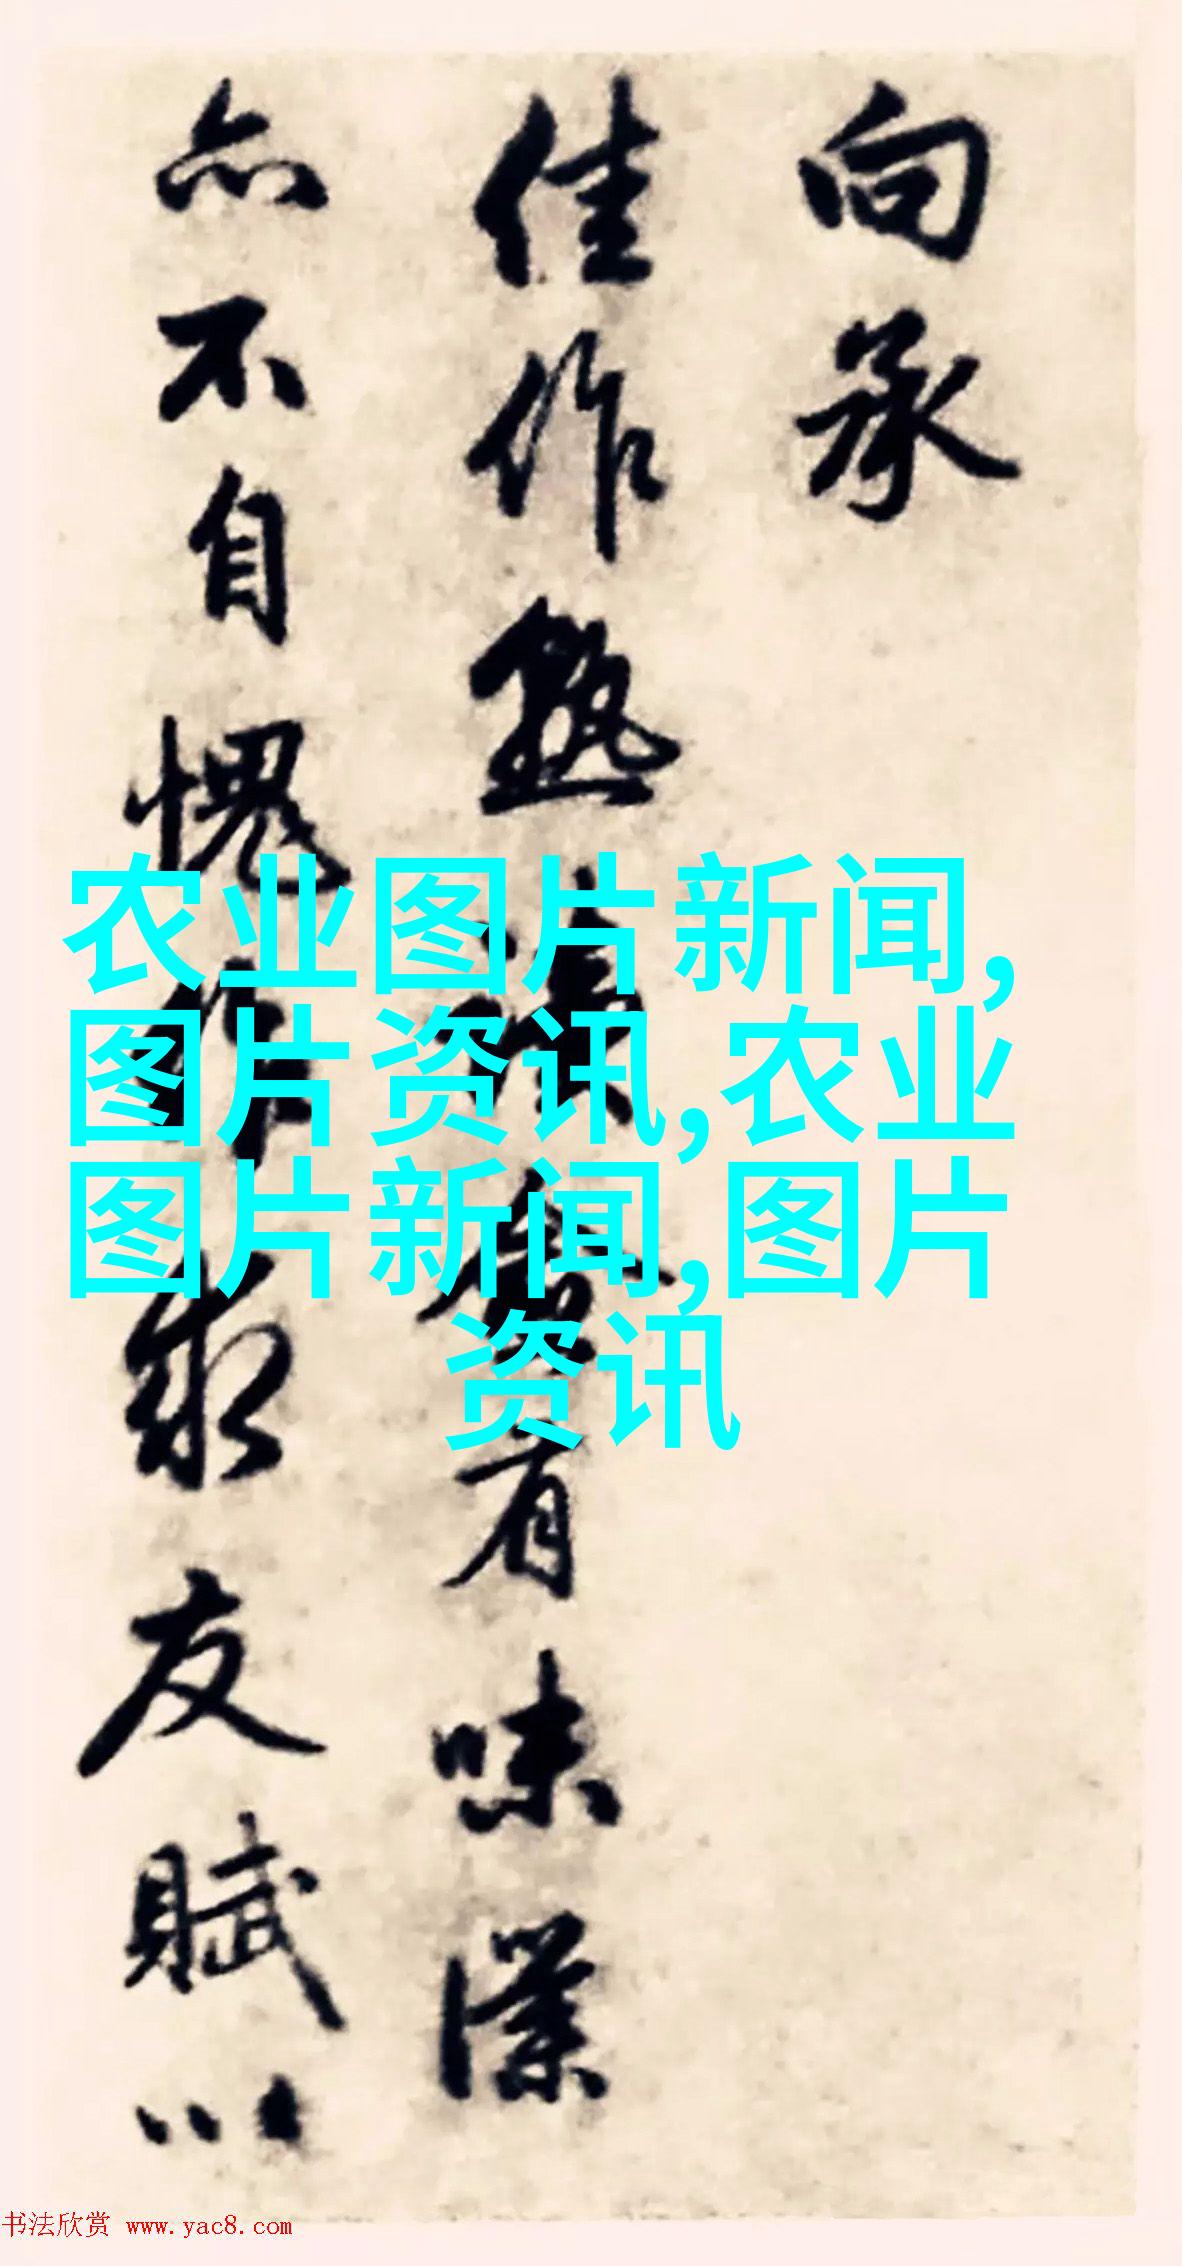 向承
佳作熟读屡有味仆
亦不自愧作求友赋以
农业图片新闻,
图片资讯,农业
图片新闻,图片
资讯
书法欣赏 www.yac8.com